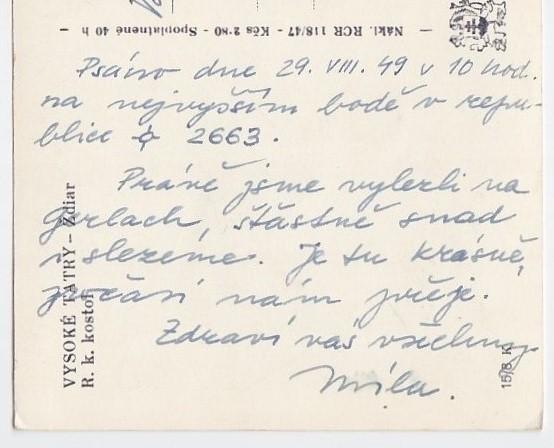 Nákl. RCR 118/47 - Kčs 2·80 - Spoplatnené 40 h
Psáno dne 29. VIII. 49 v 10 hod.
na nejvyšším bodě v repu-
blice 2663.
Právě jsme vylezli na
Gerlach, šťastně snad
slezeme. Je tu krásně,
počasí nám přeje.
Zdraví vás všechny
Míla.
VYSOKÉ TATRY – Ždiar
R. k. kostol
15/8 K